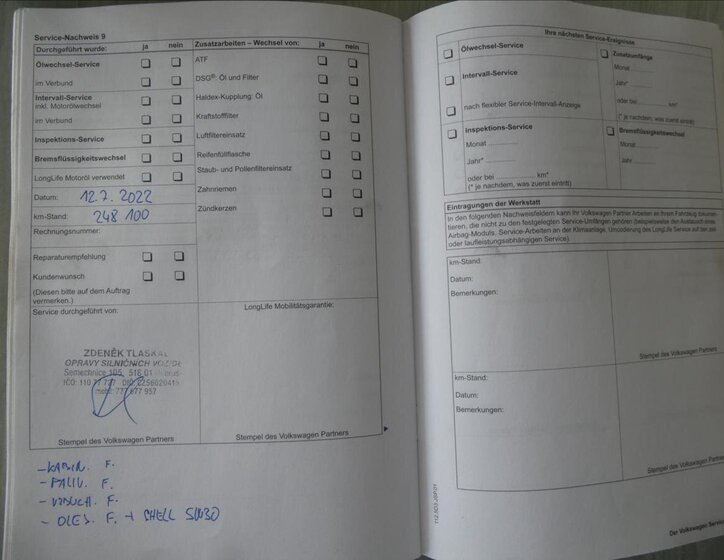 Service-Nachweis 9
Durchgeführt wurde: ja nein
Zusatzarbeiten – Wechsel von: ja nein
Ölwechsel-Service
im Verbund
Intervall-Service
inkl. Motorölwechsel
im Verbund
Inspektions-Service
Bremsflüssigkeitswechsel
LongLife Motoröl verwendet
Datum: 12.7.2022
km-Stand: 248 100
Rechnungsnummer:
Reparaturempfehlung
Kundenwunsch
(Diesen bitte auf dem Auftrag
vermerken.)
ATF
DSG®: Öl und Filter
Haldex-Kupplung: Öl
Kraftstofffilter
Luftfiltereinsatz
Reifenfüllflasche
Staub- und Pollenfiltereinsatz
Zahnriemen
Zündkerzen
Service durchgeführt von:
LongLife Mobilitätsgarantie:
ZDENĚK TLASKAL
OPRAVY SILNIČNÍCH
Semechnice 105, 518 01
IČO: 110
Stempel des Volkswagen Partners
Stempel des Volkswagen Partners
- KABIN. F.
- PALIV. F.
- VZDUCH. F.
- OLEJ. F. + SHELL 5W30
Ihre nächsten Service-Ereignisse
Ölwechsel-Service
Intervall-Service
nach flexibler Service-Intervall-Anzeige
Inspektions-Service
Monat
Jahr*
oder bei km*
(* je nachdem, was zuerst eintritt)
Zusatzumfänge
Monat
Jahr*
oder bei km*
(* je nachdem, was zuerst eintritt)
Bremsflüssigkeitswechsel
Monat
Jahr
Eintragungen der Werkstatt
In den folgenden Nachweisfeldern kann Ihr Volkswagen Partner Arbeiten an Ihrem Fahrzeug dokumen-
tieren, die nicht zu den festgelegten Service-Umfängen gehören (beispielsweise den Austausch eines
Airbag-Moduls, Service-Arbeiten an der Klimaanlage, Umcodierung des LongLife Service auf den zeit-
oder laufleistungsabhängigen Service).
km-Stand:
Datum:
Bemerkungen:
Stempel des Volkswagen Partners
km-Stand:
Datum:
Bemerkungen:
Stempel des Volkswagen Partners
Der Volkswagen Service